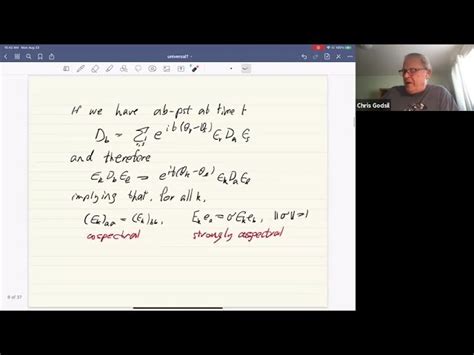 universal1
If we have ab-pst at time t
D_b = Σ_{r,s} e^{it(θ_r-θ_s)} E_r D_a E_s
and therefore
E_k D_b E_ℓ = e^{it(θ_k-θ_ℓ)} E_k D_a E_ℓ
implying that, for all k,
(E_k)_{aa} = (E_k)_{bb}, E_k e_a = σ E_k e_b, ‖σ‖=1
cospectral strongly cospectral
8 of 37
Chris Godsil